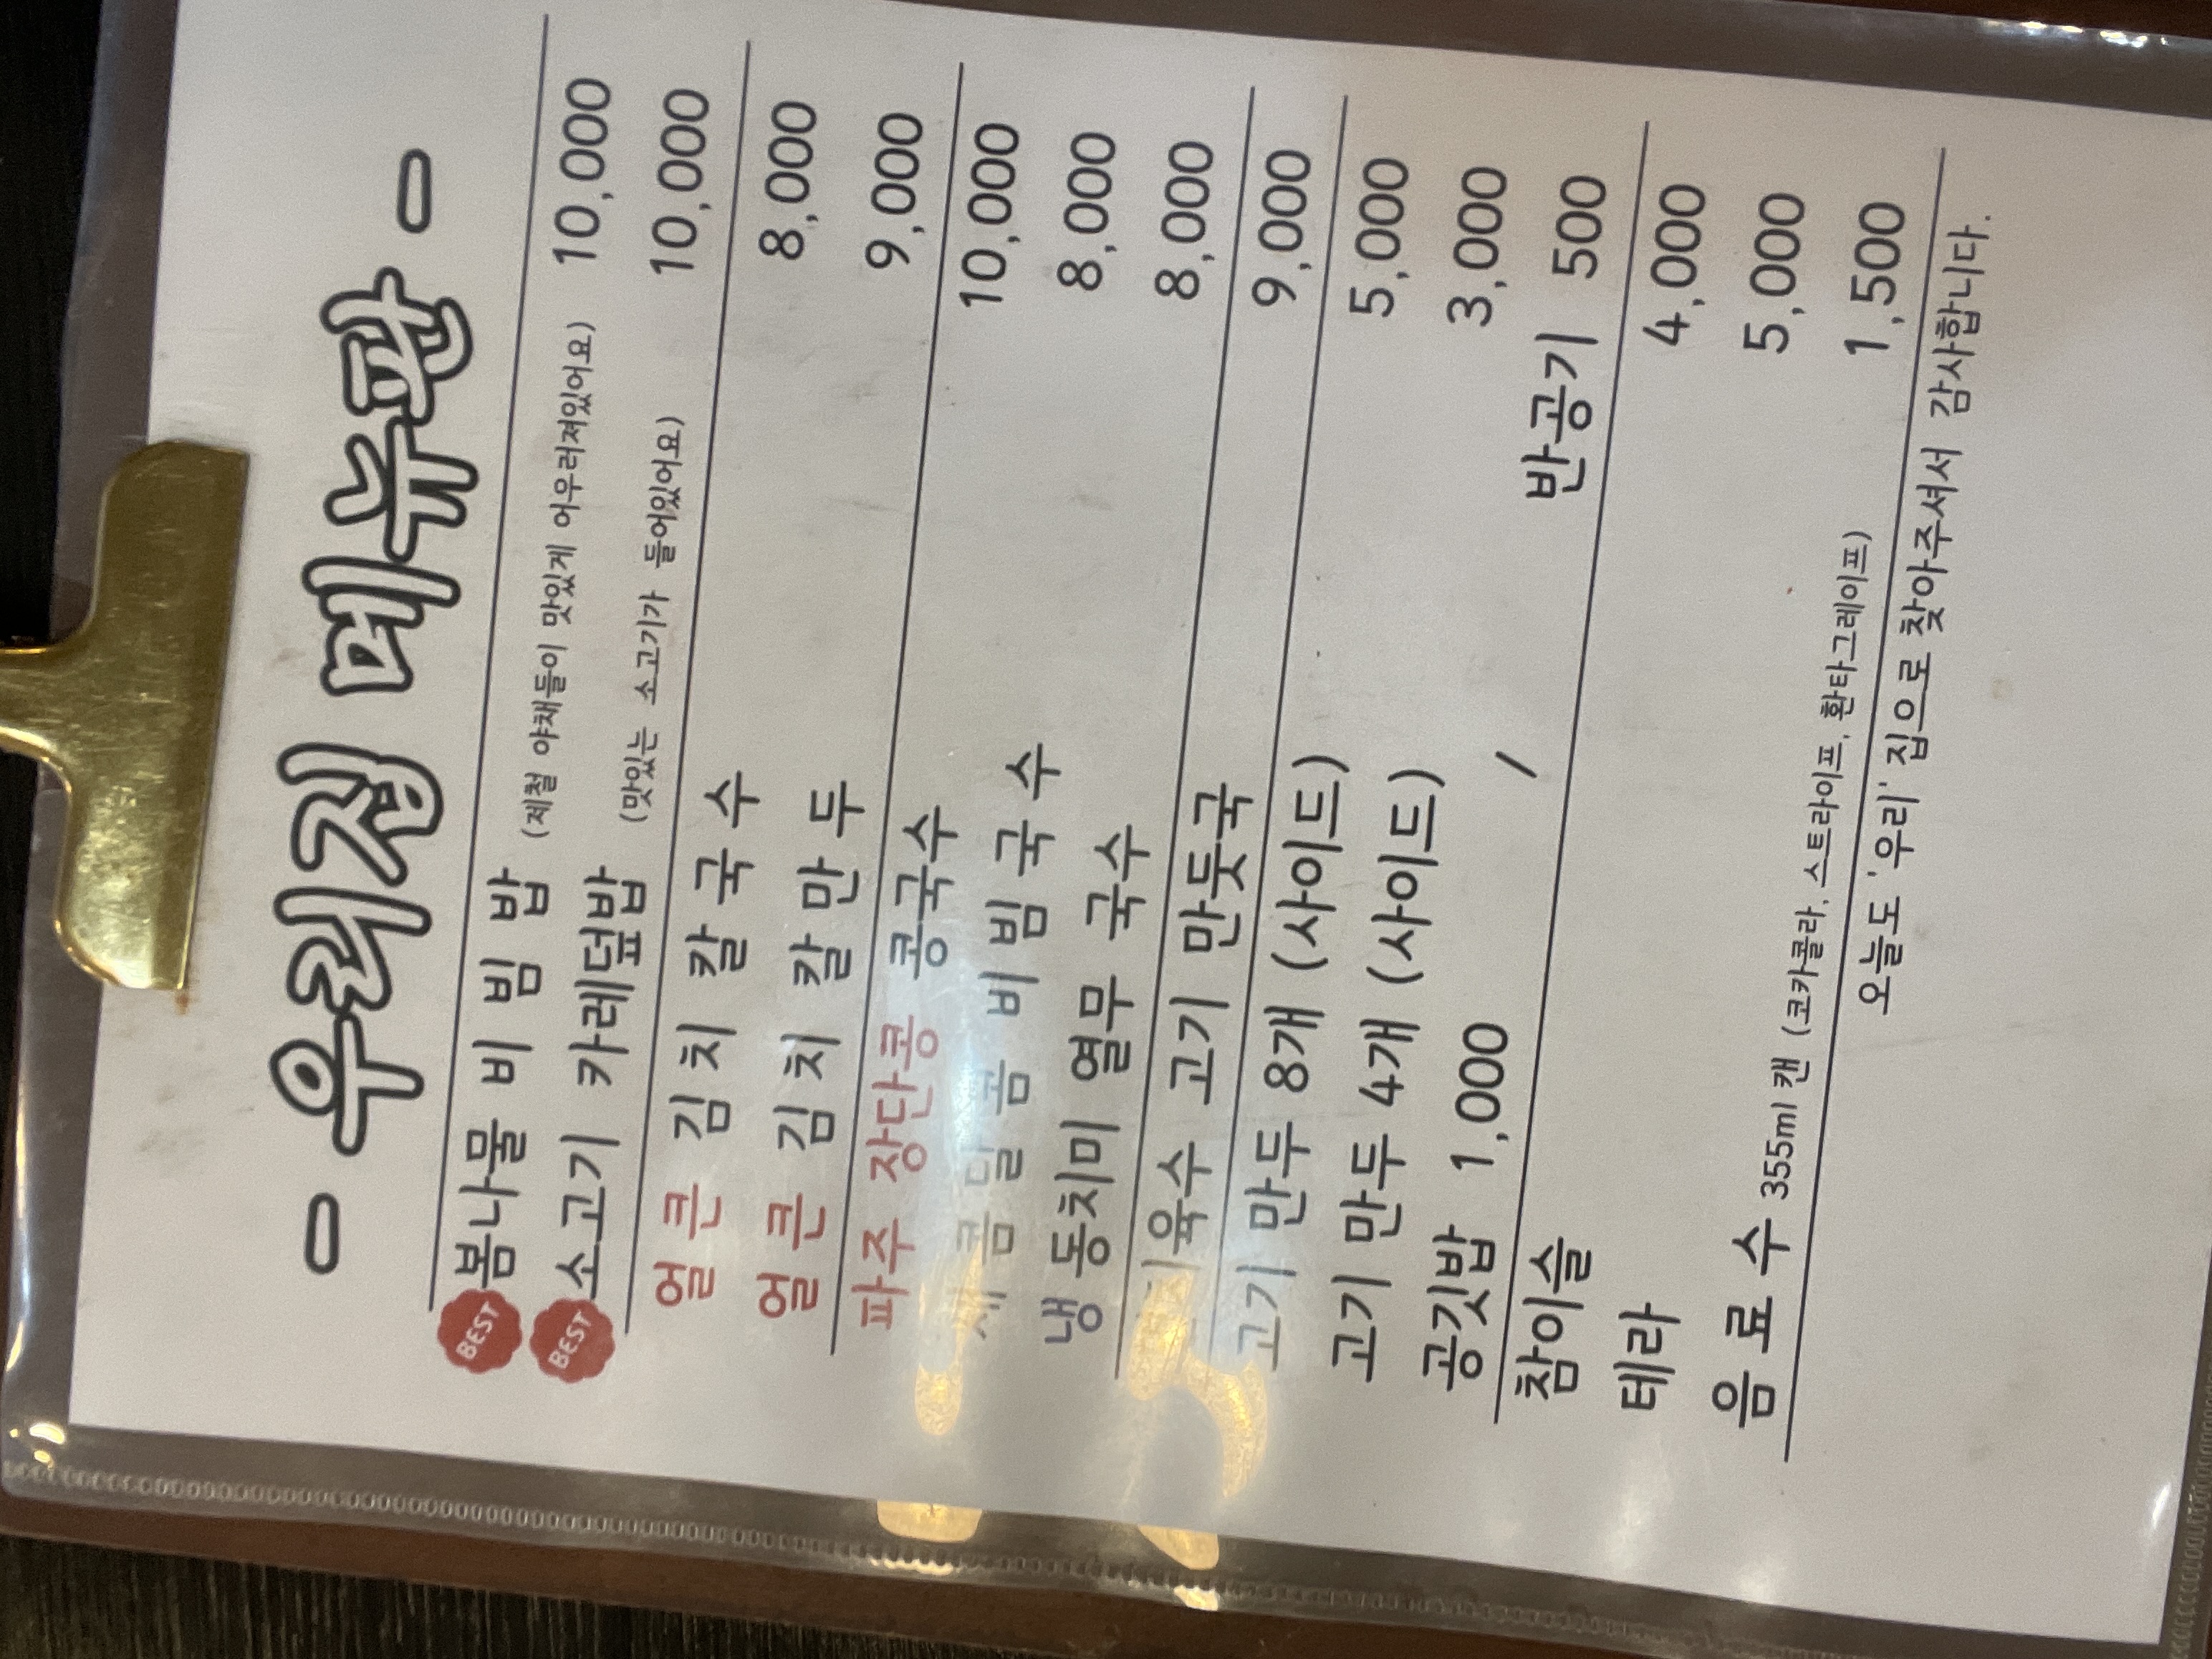 - 우리집 메뉴판 -
BEST 봄나물 비 빔 밥 (제철 야채들이 맛있게 어우러져있어요) 10,000
BEST 소고기 카레덮밥 (맛있는 소고기가 들어있어요) 10,000
얼 큰 김 치 칼 국 수 8,000
얼 큰 김 치 칼 만 두 9,000
파주 장단콩 콩국수 10,000
새 콤 달 콤 비 빔 국 수 8,000
냉 동치미 열무 국수 8,000
육수 고기 만둣국 9,000
고기 만두 8개 (사이드) 5,000
고기 만두 4개 (사이드) 3,000
공깃밥 1,000 / 반공기 500
참이슬 4,000
테라 5,000
음 료 수 355ml 캔 (코카콜라, 스트라이프, 환타그레이프) 1,500
오늘도 '우리' 집으로 찾아주셔서 감사합니다.